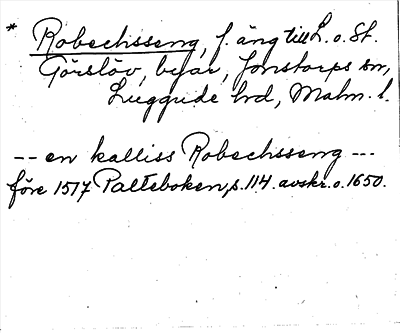 * Robechsseng, f. äng till L. o. St.
Görslöv, byar, Jonstorps sn,
Luggude hrd, Malm. l.
-- en kalliss Robechsseng ---
före 1517 Palteboken, s. 114. avskr. o. 1650.